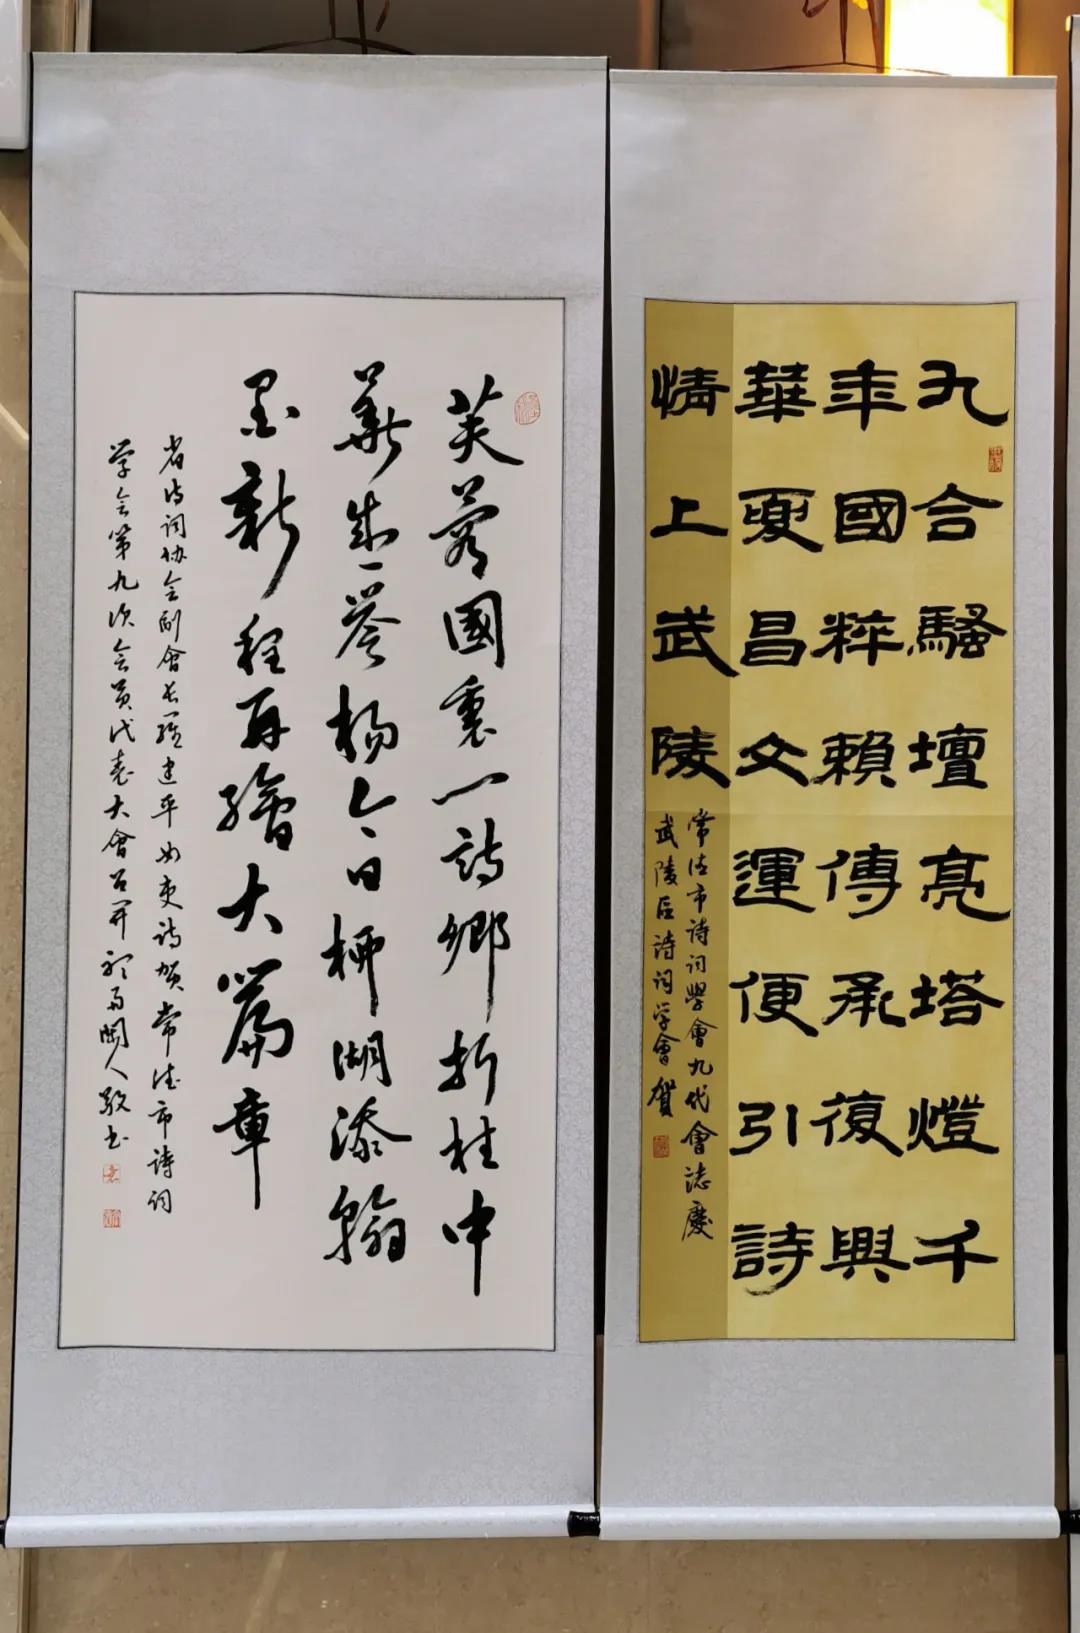 九合騷壇亮塔燈千
年國粹賴傳承復興
華夏昌文運便引詩
情上武陵
常德市詩詞學會九代會誌慶
武陵区詩詞学會賀
芙蓉國裏一詩鄉折桂中
華盛譽揚今日柳湖添翰
墨新程再繪大篇章
省诗词协会副會长羅建平女史诗贺常德市詩词
学会第九次会员代表大會召开雨闌人敬书